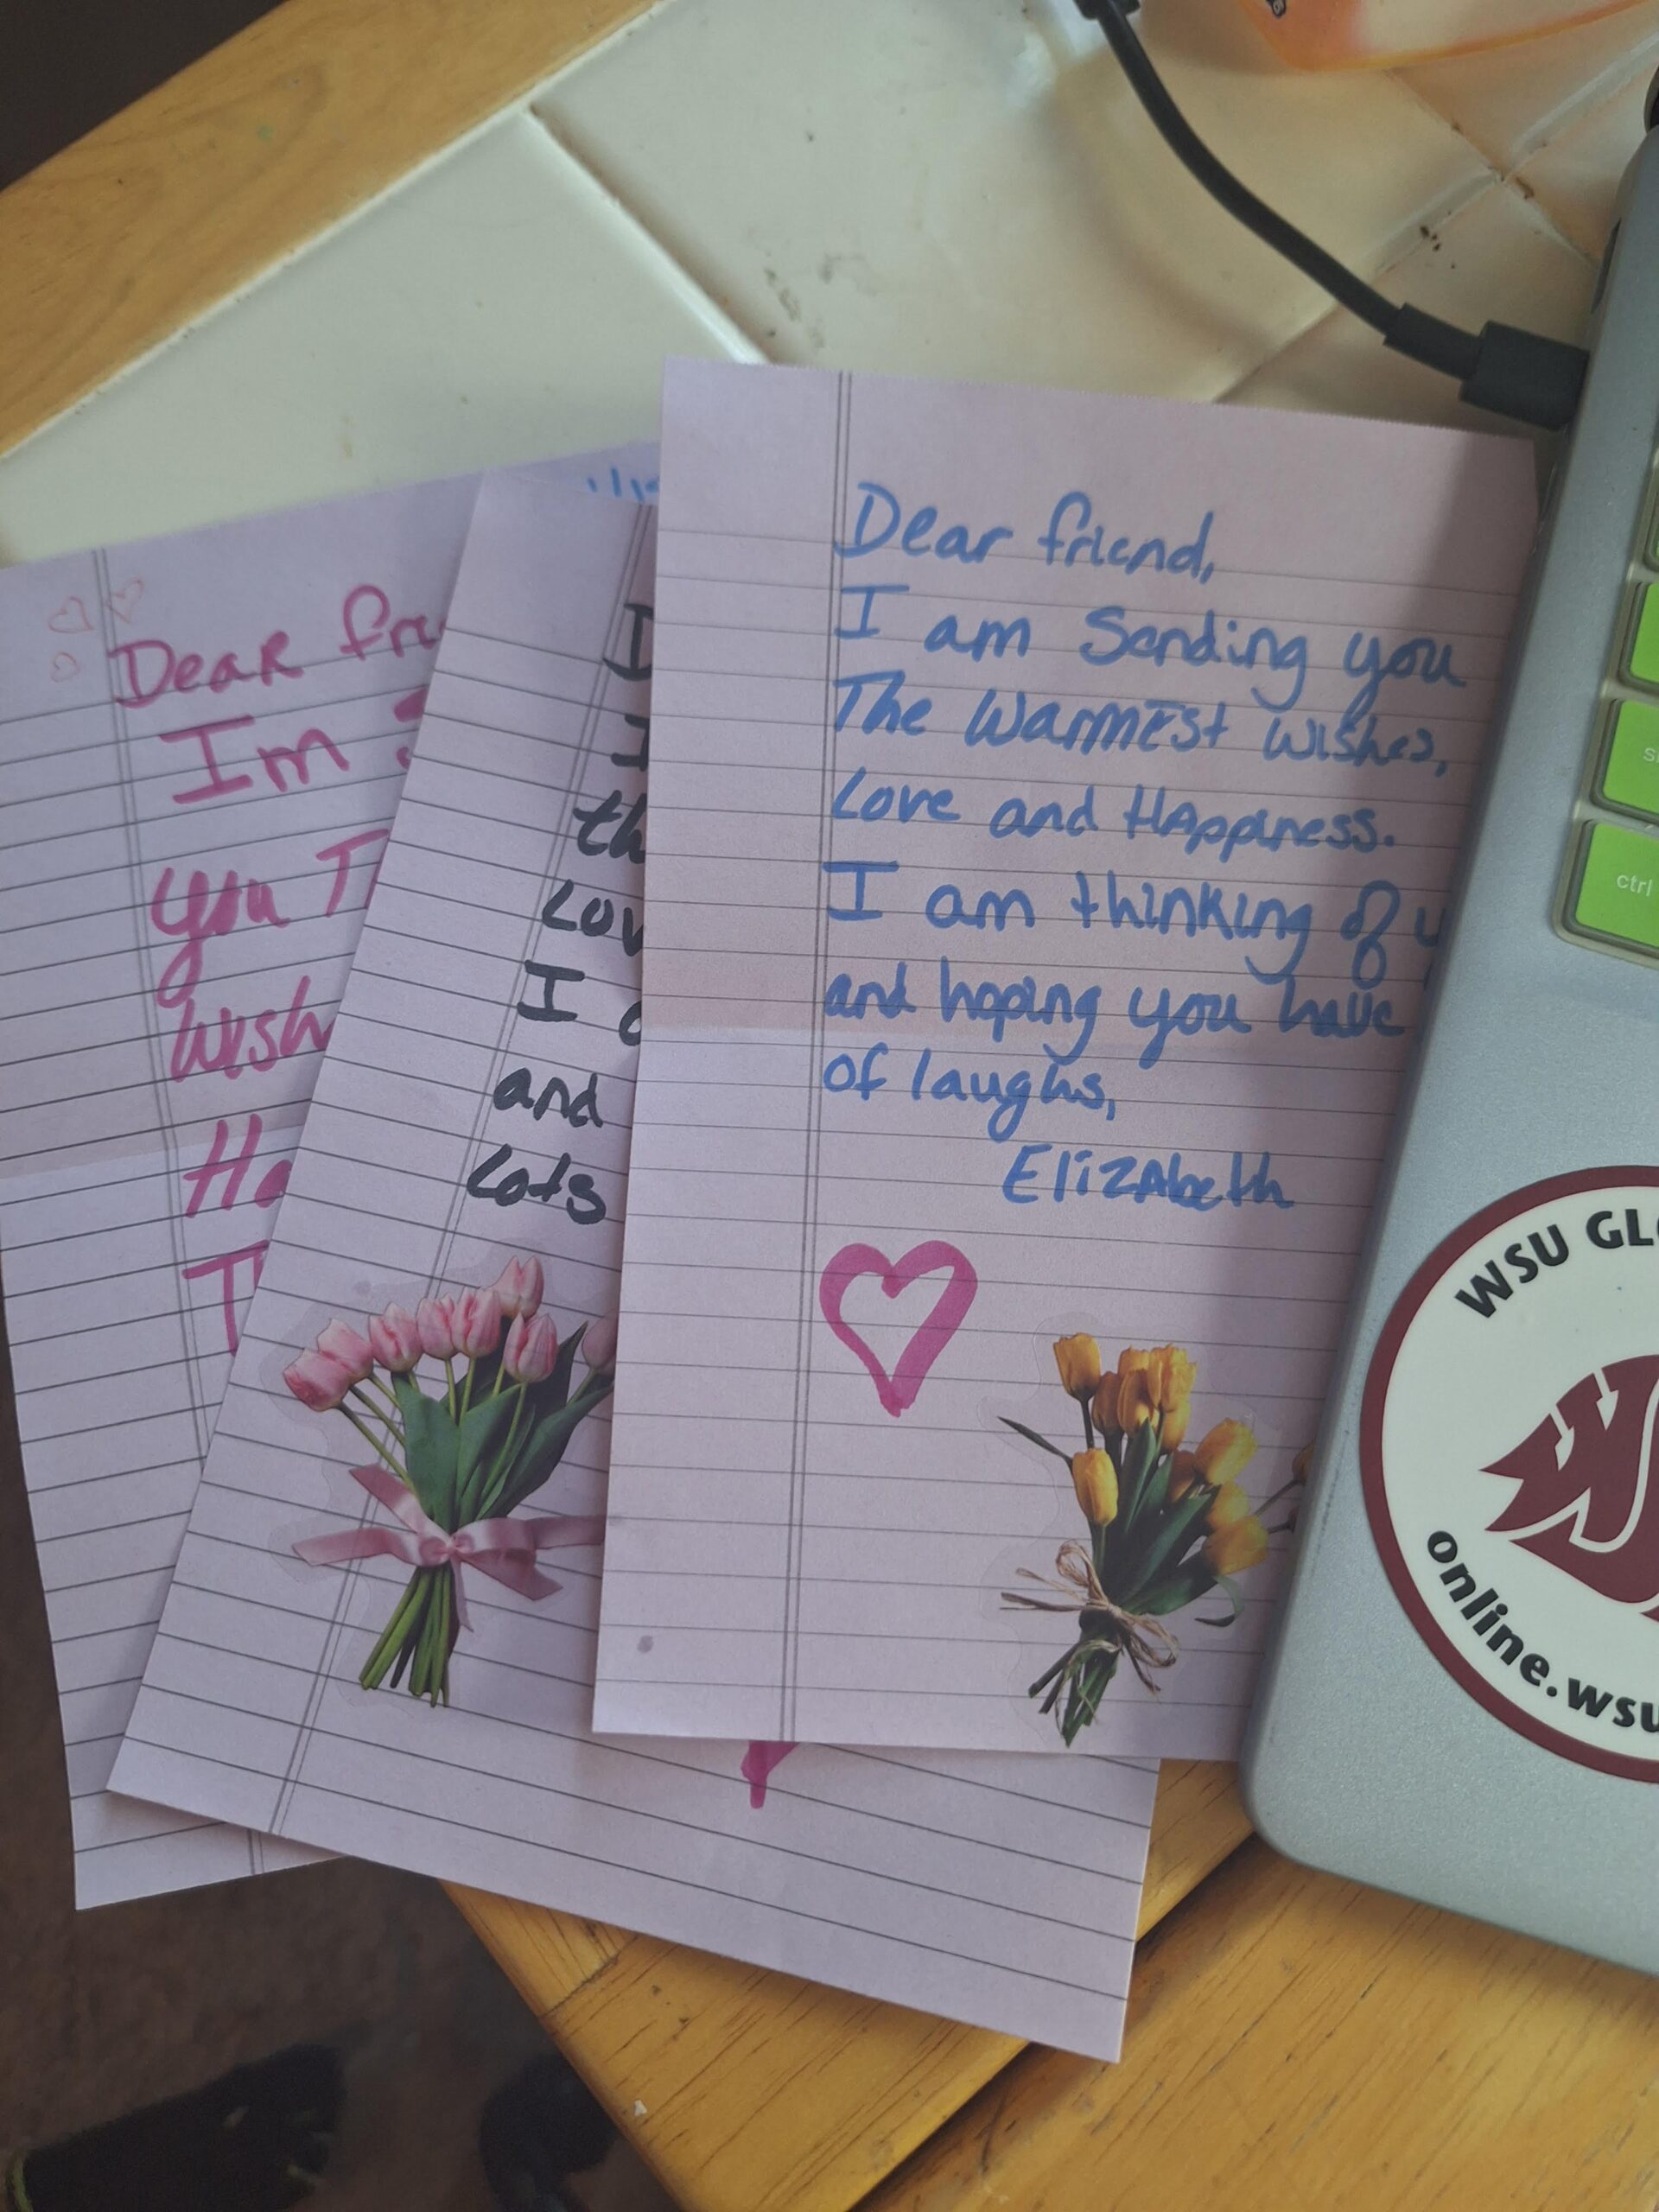 Dear
Im
you
wish
and
Lots
Dear friend,
I am Sending you
The WARMEST wishes,
Love and HAppiness.
I am thinking of
and hoping you have
of laughs,
ElizAbeth
ctrl
WSU
online.wsu